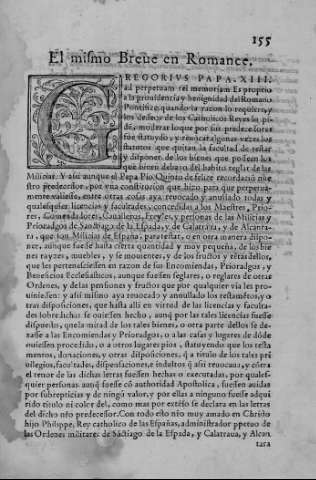 155
El mismo Breue en Romance.
GREGORIVS PAPA. XIII.
ad perpetuam rei memoriam Es propio
a la prouidencia y benignidad del Romano
Pontifice, quando la razon lo requiere, y
los desseos de los Catholicos Reyes lo pi-
dē, moderar lo que por sus predecessores
fue statuydo, y reuocar algunas vezes los
statutos que quitan la facultad de testar
y disponer de los bienes que posseen los
que biuen debaxo del habito reglar de las
Milicias. Y assi aunque el Papa Pio Quinto de felice recordaciō nue-
stro predecessor, por vna constitucion que hizo para que perpetua-
mente valiesse, entre otras cosas aya reuocado y anullado todas y
qualesquier licencias y facultades, concedidas a los Maestres, Prio-
res, Comendadores, Caualleros, Freyles, y personas de las Milicias y
Prioradgos de Sanctiago de la Espada, y de Calatraua, y de Alcanta-
ra, que son Milicias de España, para testar, o en otra manera dispo-
ner, aunque fuesse hasta cierta quantidad y muy pequeña, de los bie-
nes rayzes, muebles, y se mouientes, y de los fructos y rētas dellos,
que les pertenesciessen en razon de sus Encomiendas, Prioradgos, y
Beneficios Ecclesiasticos, aunque fuessen seglares, o reglares de otras
Ordenes, y de las pensiones y fructos que por qualquier via les pro-
uiniessen: y assi mismo aya reuocado y annullado los testamētos, o
otras disposiciones, que hasta alli en virtud de las licencias y faculta-
des sobredichas se ouiessen hecho, aunq̃ por las tales licencias fuesse
dispuesto, que la mitad de los tales bienes, o otra parte dellos se de-
xasse a las Encomiendas y Prioradgos, o a las casas y lugares de dōde
ouiessen procedido, o a otros lugares pios, statuyendo que los testa
mentos, donaciones, y otras disposiciones, q̃ a titulo de los tales pri
uilegios, facultades, dispensaciones, e indultos q̃ assi reuocaua, y cōtra
el tenor de las dichas letras fuessen hechas o executadas, por quales-
quier personas aunq̃ fuesse cō authoridad Apostolica, fuessen auidas
por subrepticias y de ningū valor, y por ellas a ninguno fuesse adqui
rido titulo ni color del, como mas por extēso se declara en las letras
del dicho nr̃o predecessor. Con todo esto nr̃o muy amado en Christo
hijo Philippe, Rey catholico de las Españas, administrador ppetuo de
las Ordenes militares de Sāctiago de la Espada, y Calatraua, y Alcan
tara